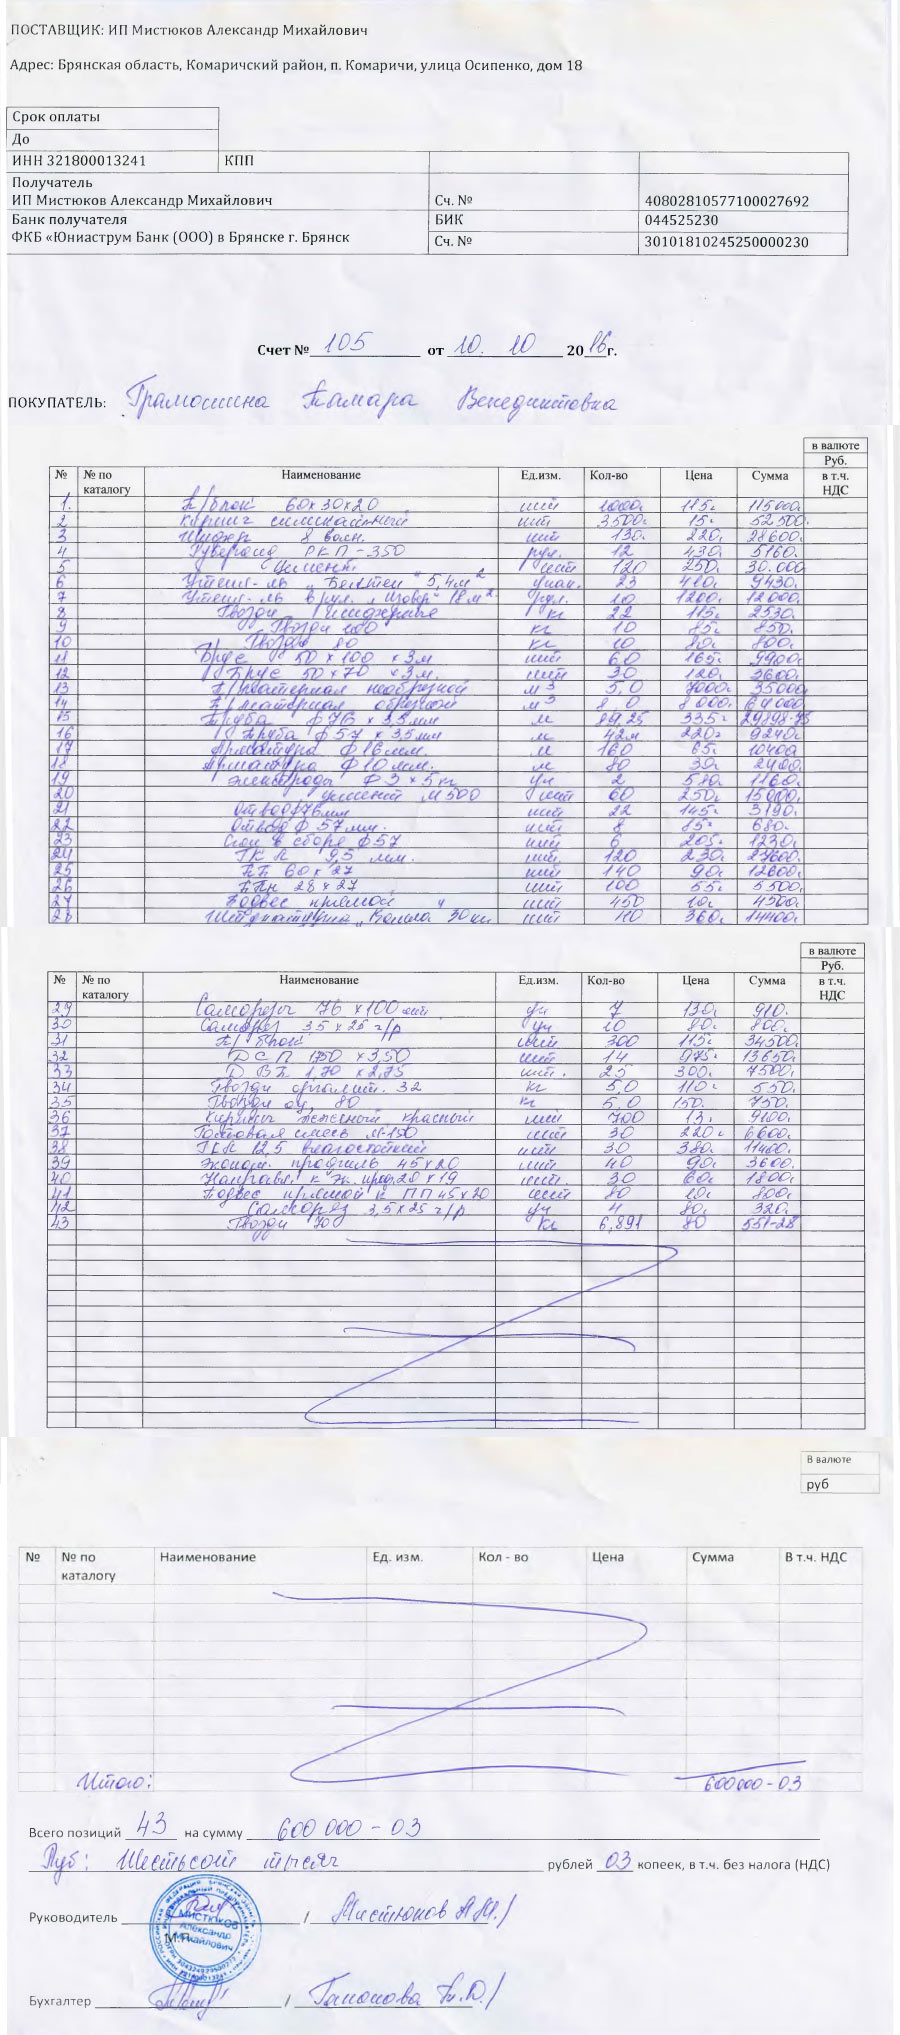 ПОСТАВЩИК: ИП Мистюков Александр Михайлович
Адрес: Брянская область, Комаричский район, п. Комаричи, улица Осипенко, дом 18
Срок оплаты
До
ИНН 321800013241 КПП
Получатель
ИП Мистюков Александр Михайлович Сч. № 40802810577100027692
Банк получателя БИК 044525230
ФКБ «Юниаструм Банк (ООО) в Брянске г. Брянск Сч. № 30101810245250000230
Счет № 105 от 10. 10 2016г.
ПОКУПАТЕЛЬ: Грамошина Тамара Венедиктовна
в валюте
Руб.
№ № по каталогу Наименование Ед.изм. Кол-во Цена Сумма в т.ч. НДС
1. П/блок 60х30х20 шт 1000. 115. 115000.
2 Кирпич силикатный шт 3500. 15. 52500.
3 Шифер 8 волн. шт 130. 220. 28600.
4 Рувероид РКП-350 рул. 12 430. 5160.
5 Цемент. шт 120 250. 30.000
6 Утепл-ль "Белтеп" 5,4м² упак. 23 410. 9430.
7 Утепл-ль в рул. "Изовер" 18м² рул. 10 1200. 12000.
8 Гвозди шиферные кг 22 115. 2530.
9 Гвозди 100 кг 10 85. 850.
10 Гвозди 80 кг 10 80. 800.
11 Брус 50х100 х3м шт 60 165. 9900.
12 Брус 50х70 х3м. шт 30 120. 3600.
13 П/материал необрезной м³ 5,0 7000. 35000
14 П/материал обрезной м³ 8,0 8000. 64000
15 Труба ф76 х 3,5мм м 89,25 335. 29898-75
16 Труба ф57 х 3,5мм м 42м 220. 9240.
17 Арматура ф16мм. м 160 65. 10400
18 Арматура ф10мм. м 80 30. 2400.
19 Электроды ф3 х 5кг уп 2 580. 1160.
20 Цемент М500 шт 60 250. 15000.
21 Отвод ф76мм шт 22 145. 3190.
22 Отвод ф57мм. шт 8 85. 680.
23 Сгон в сборе ф57 шт 6 205. 1230.
24 ГКЛ 9,5 мм. шт. 120 230. 27600.
25 ПП 60х27 шт 140 90. 12600.
26 ППн 28х27 шт 100 55. 5500.
27 Подвес прямой шт 450 10. 4500.
28 Штукатурка "Волма" 30кг. шт 40 360. 14400.
в валюте
Руб.
№ № по каталогу Наименование Ед.изм. Кол-во Цена Сумма в т.ч. НДС
29 Саморезы 76х100 шт. уп 7 130. 910.
30 Саморез 35х25 г/р уп 10 80. 800.
31 П/блок шт 300 115. 34500.
32 ДСП 1750 х3,50 шт 14 975. 13650.
33 ДВП 1,70 х2,75 шт. 25 300. 7500.
34 Гвозди оргалит. 32 кг 5,0 110. 550.
35 Гвозди оц. 80 кг 5,0 150. 750.
36 Кирпич печной красный шт 700 13. 9100.
37 Готовая смесь М-150 шт 30 220. 6600.
38 ГКЛ 12,5 влагостойкий шт 30 380. 11400.
39 Эконом. профиль 45х20 шт 40 90. 3600.
40 Направл. к эк. проф. 20х19 шт. 30 60. 1800.
41 Подвес прямой к ПП 45х20 шт 80 10. 800.
42 Саморез 3,5х25 г/р уп 4 80. 320.
43 Гвозди 70 кг 6,891 80 551-28
В валюте
руб
№ № по каталогу Наименование Ед. изм. Кол - во Цена Сумма В т.ч. НДС
Итого: 600000-03
Всего позиций 43 на сумму 600 000 - 03
Руб: Шестьсот тысяч рублей 03 копеек, в т.ч. без налога (НДС)
Руководитель / Мистюков А.М./
МИСТЮКОВ
Александр
Михайлович
М.П.
Бухгалтер / Гапонова Т.Д./